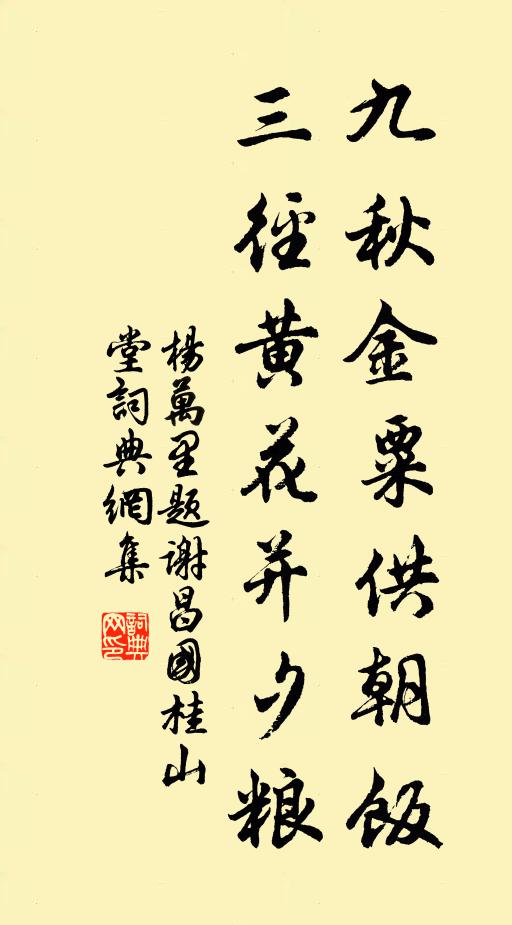 九秋金粟供朝飯
三徑黄花并夕粮
楊萬里題謝昌國桂山
堂詞典網集
詞典
网印